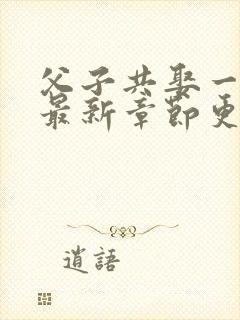 父子共娶一
最新章節更
逍語